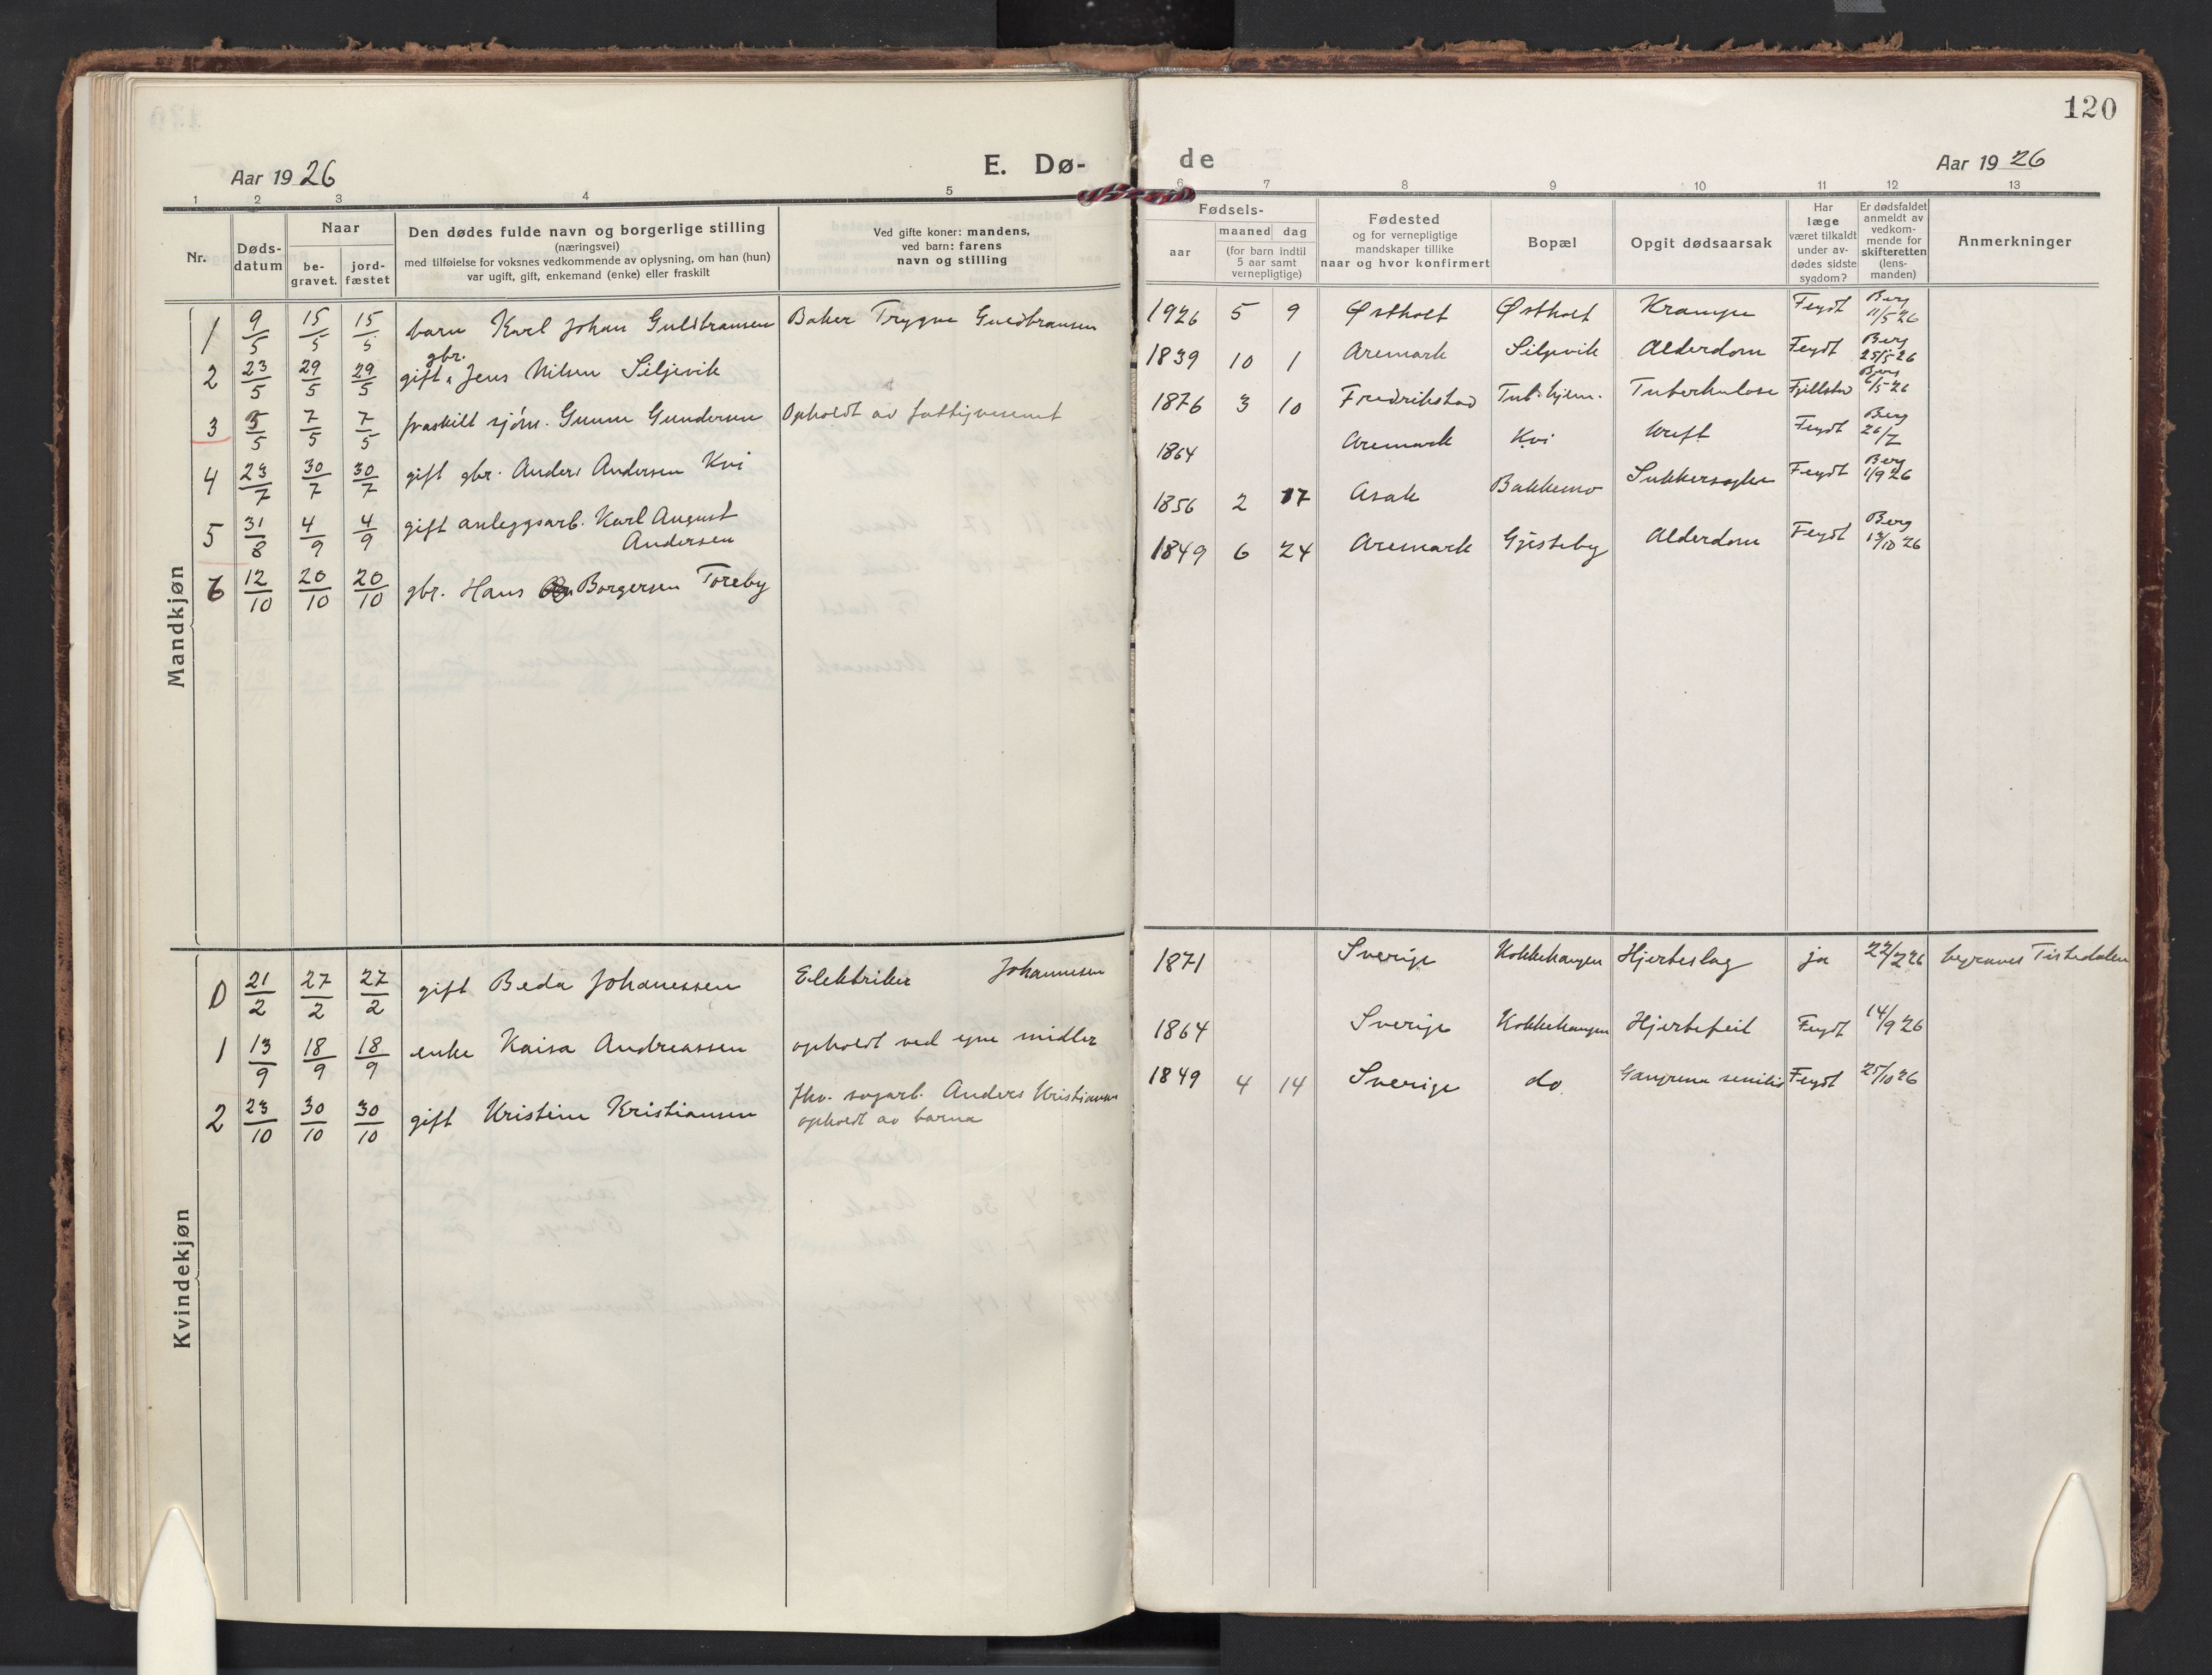 120
Aar 1926
E. Dø-
de
Aar 1926
1 2 3 4 5
6 7 8 9 10 11 12 13
Nr.
Døds-
datum
Naar
be-
gravet.
jord-
fæstet
Den dødes fulde navn og borgerlige stilling
(næringsvei)
med tilføielse for voksnes vedkommende av oplysning, om han (hun)
var ugift, gift, enkemand (enke) eller fraskilt
Ved gifte koner: mandens,
ved barn: farens
navn og stilling
Fødsels-
aar
maaned dag
(for barn indtil
5 aar samt
vernepligtige)
Fødested
og for vernepligtige
mandskaper tillike
naar og hvor konfirmert
Bopæl
Opgit dødsaarsak
Har
læge
været tilkaldt
under av-
dødes sidste
sygdom?
Er dødsfaldet
anmeldt av
vedkom-
mende for
skifteretten
(lens-
manden)
Anmerkninger
Mandkjøn
1 9/5 15/5 15/5 barn Karl Johan Guldbransen Baker Trygve Guldbransen 1926 5 9 Østholt Østholt Krampe Feydt Berg 11/5 26
2 23/5 29/5 29/5 gift gbr. Jens Nilsen Siljevik 1839 10 1 Aremark Siljevik Alderdom Feydt Berg 25/5 26
3 5/5 7/5 7/5 fraskilt sjøm. Gunder Gundersen Opholdt av fattigvesenet 1876 3 10 Fredrikstad Tub. hjem. Tuberkulose Fjellstad Berg 6/5 26
4 23/7 30/7 30/7 gift gbr. Anders Andersen Kvi 1864 Aremark Kvi Kreft Feydt Berg 26/7
5 31/8 4/9 4/9 gift anleggsarb. Karl August
Andersen 1856 2 17 Asak Bakkemo Sukkersyke Feydt Berg 1/9 26
6 12/10 20/10 20/10 gbr. Hans Borgersen Toreby 1849 6 24 Aremark Gjesteby Alderdom Feydt Berg 13/10 26
Kvindekjøn
0 21/2 27/2 27/2 gift Beda Johanessen Elektriker Johannesen 1871 Sverige Kokkehaugen Hjerteslag ja 22/2 26 begraves Tistedalen
1 13/9 18/9 18/9 enke Kaisa Andreassen opholdt ved egne midler 1864 Sverige Kokkehaugen Hjertefeil Feydt 14/9 26
2 23/10 30/10 30/10 gift Kristine Kristiansen fhv. sagarb. Anders Kristiansen
opholdt av barna 1849 4 14 Sverige do Gangrena senilis Feydt 25/10 26